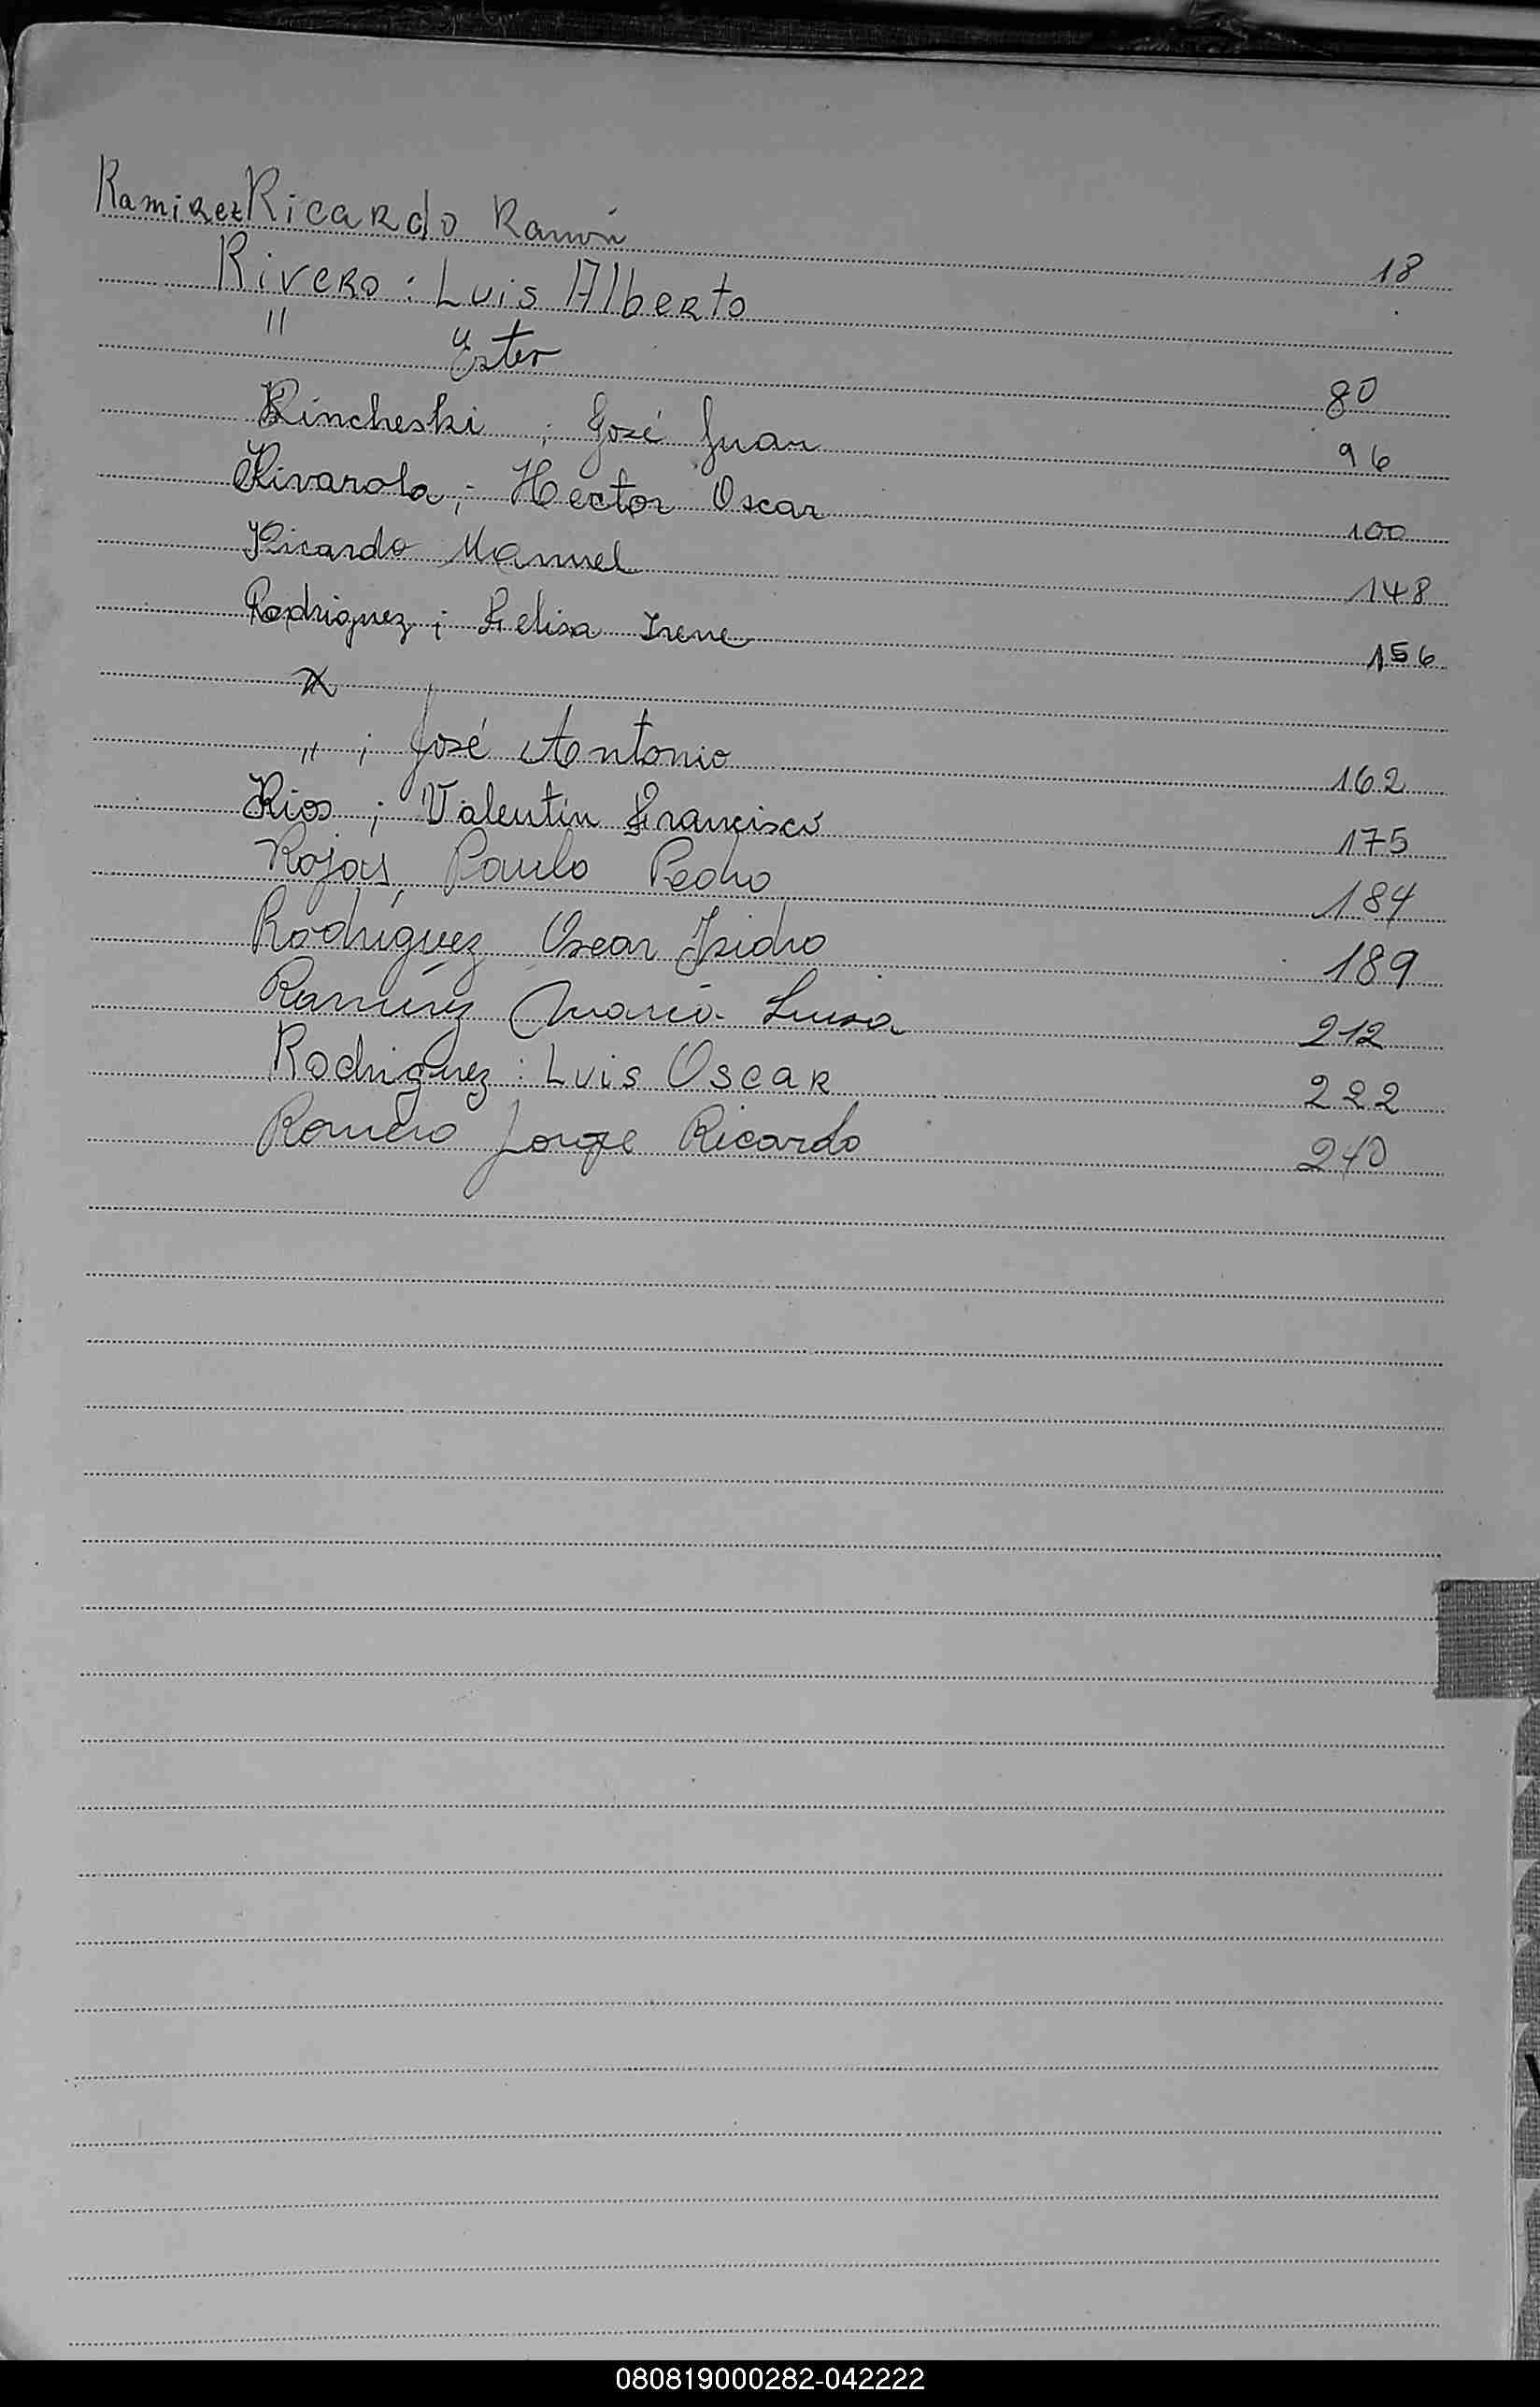 Ramirez Ricardo Ramón 18
Rivero: Luis Alberto
" Ester 80
Rincheski ; José Juan 96
Rivarola ; Hector Oscar 100
Ricardo Manuel 148
Rodriguez ; Felisa Irene 156
" ; José Antonio 162
Rios ; Valentín Francisco 175
Rojas, Paulo Pedro 184
Rodríguez Oscar Isidro 189
Ramírez María Luisa 212
Rodriguez : Luis Oscar 222
Romero Jorge Ricardo 240
080819000282-042222